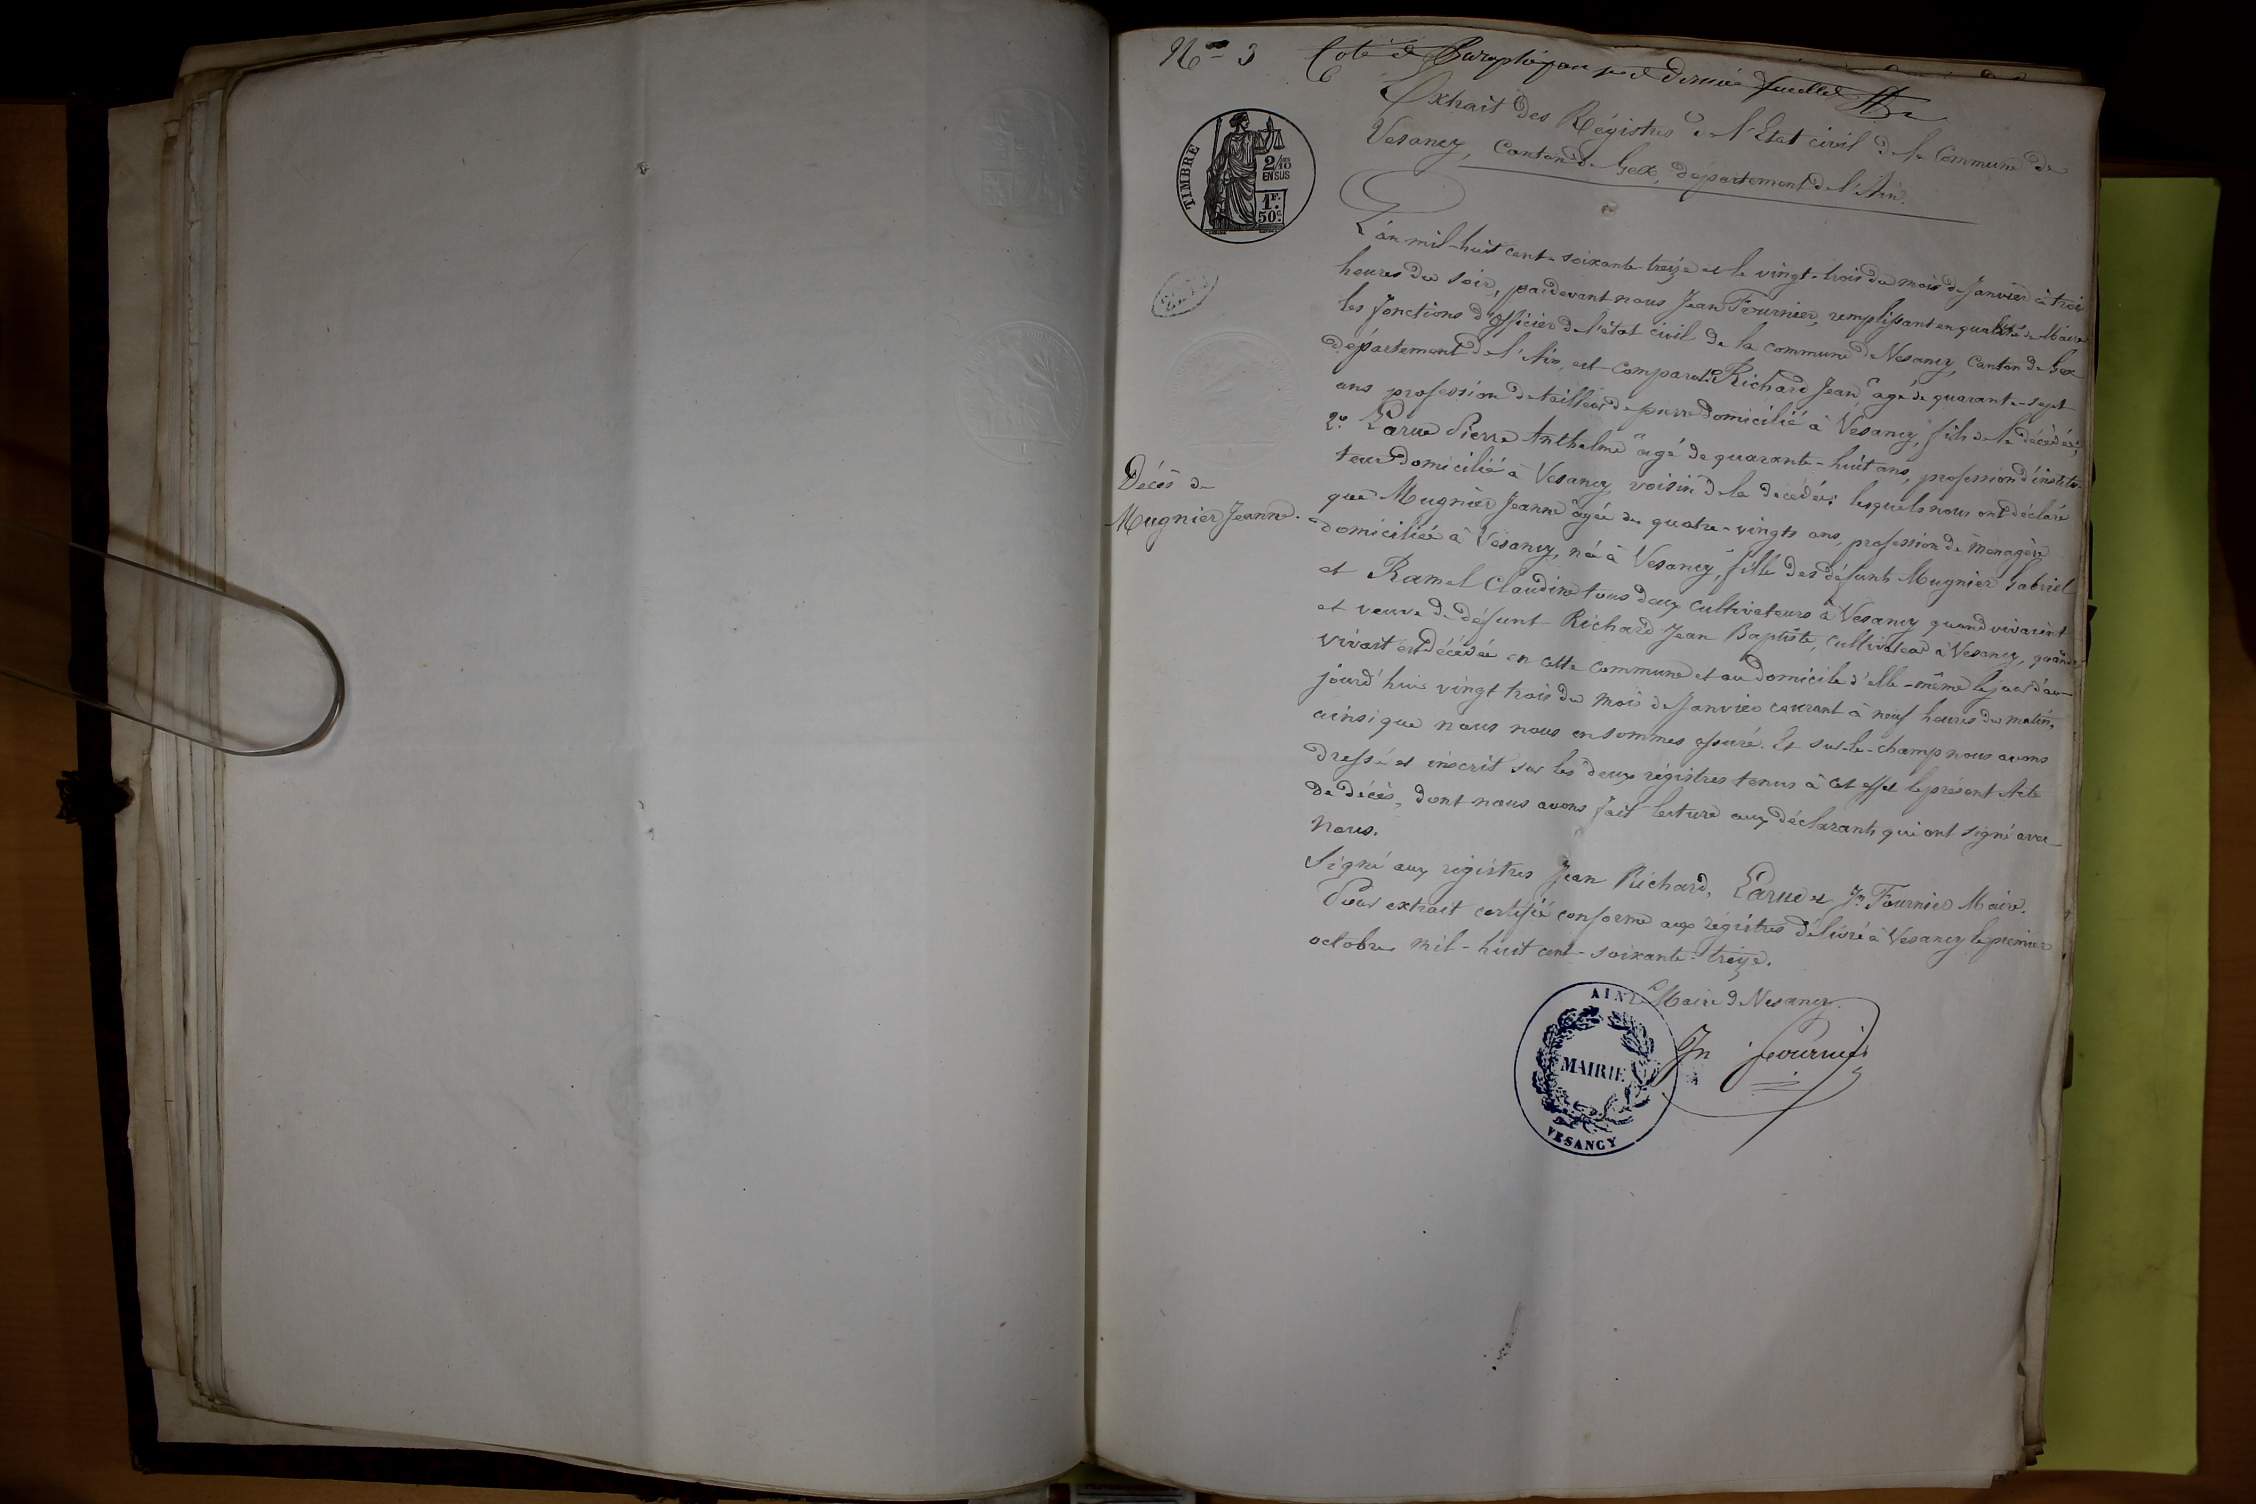 N° 3 Coté et Paraphé par et dernier feuillet
Extrait des Régistres de l'Etat civil de la Commune de
Vesancy, Canton de Gex, département de l'Ain.
TIMBRE
2/10
EN SUS
1F.
50c.
L'an mil-huit cent-soixante treize et le vingt-trois du mois de Janvier à trois
heures du soir, pardevant nous Jean Fournier, remplissant en qualité de Maire
les fonctions d'Officier de l'état civil de la commune de Vesancy, Canton de Gex
département de l'Ain, est comparu 1° Richard Jean, agé de quarante-sept
ans profession de tailleur de pierre domicilié à Vesancy, fils de la décédée;
2° Larue Pierre Anthelme agé de quarante-huit ans, profession d'institu-
teur domicilié à Vesancy, voisin de la décédée; lesquels nous ont déclaré
que Mugnier Jeanne agée de quatre-vingts ans, profession de ménagère
domiciliée à Vesancy, née à Vesancy, fille des défunts Mugnier Gabriel
et Ramel Claudine tous deux cultivateurs à Vesancy quand vivaient
et veuve de défunt Richard Jean Baptiste, cultivateur à Vesancy, quand
vivait est décédée en cette commune et au domicile d'elle-même le jour d'au-
jourd'hui vingt trois du mois de Janvier courant à neuf heures du matin,
ainsi que nous nous en sommes assuré. Et sur-le-champ nous avons
dressé et inscrit sur les deux régistres tenus à cet effet le présent Acte
de décès, dont nous avons fait lecture aux déclarants qui ont signé avec
nous.
Décès de
Mugnier Jeanne.
Signé aux régistres Jean Richard, Larue et Jn Fournier Maire.
Pour extrait certifié conforme aux régistres délivré à Vesancy le premier
octobre mil-huit cent-soixante-treize.
Le Maire de Vesancy
Jn fournier
AIN
MAIRIE
VESANCY